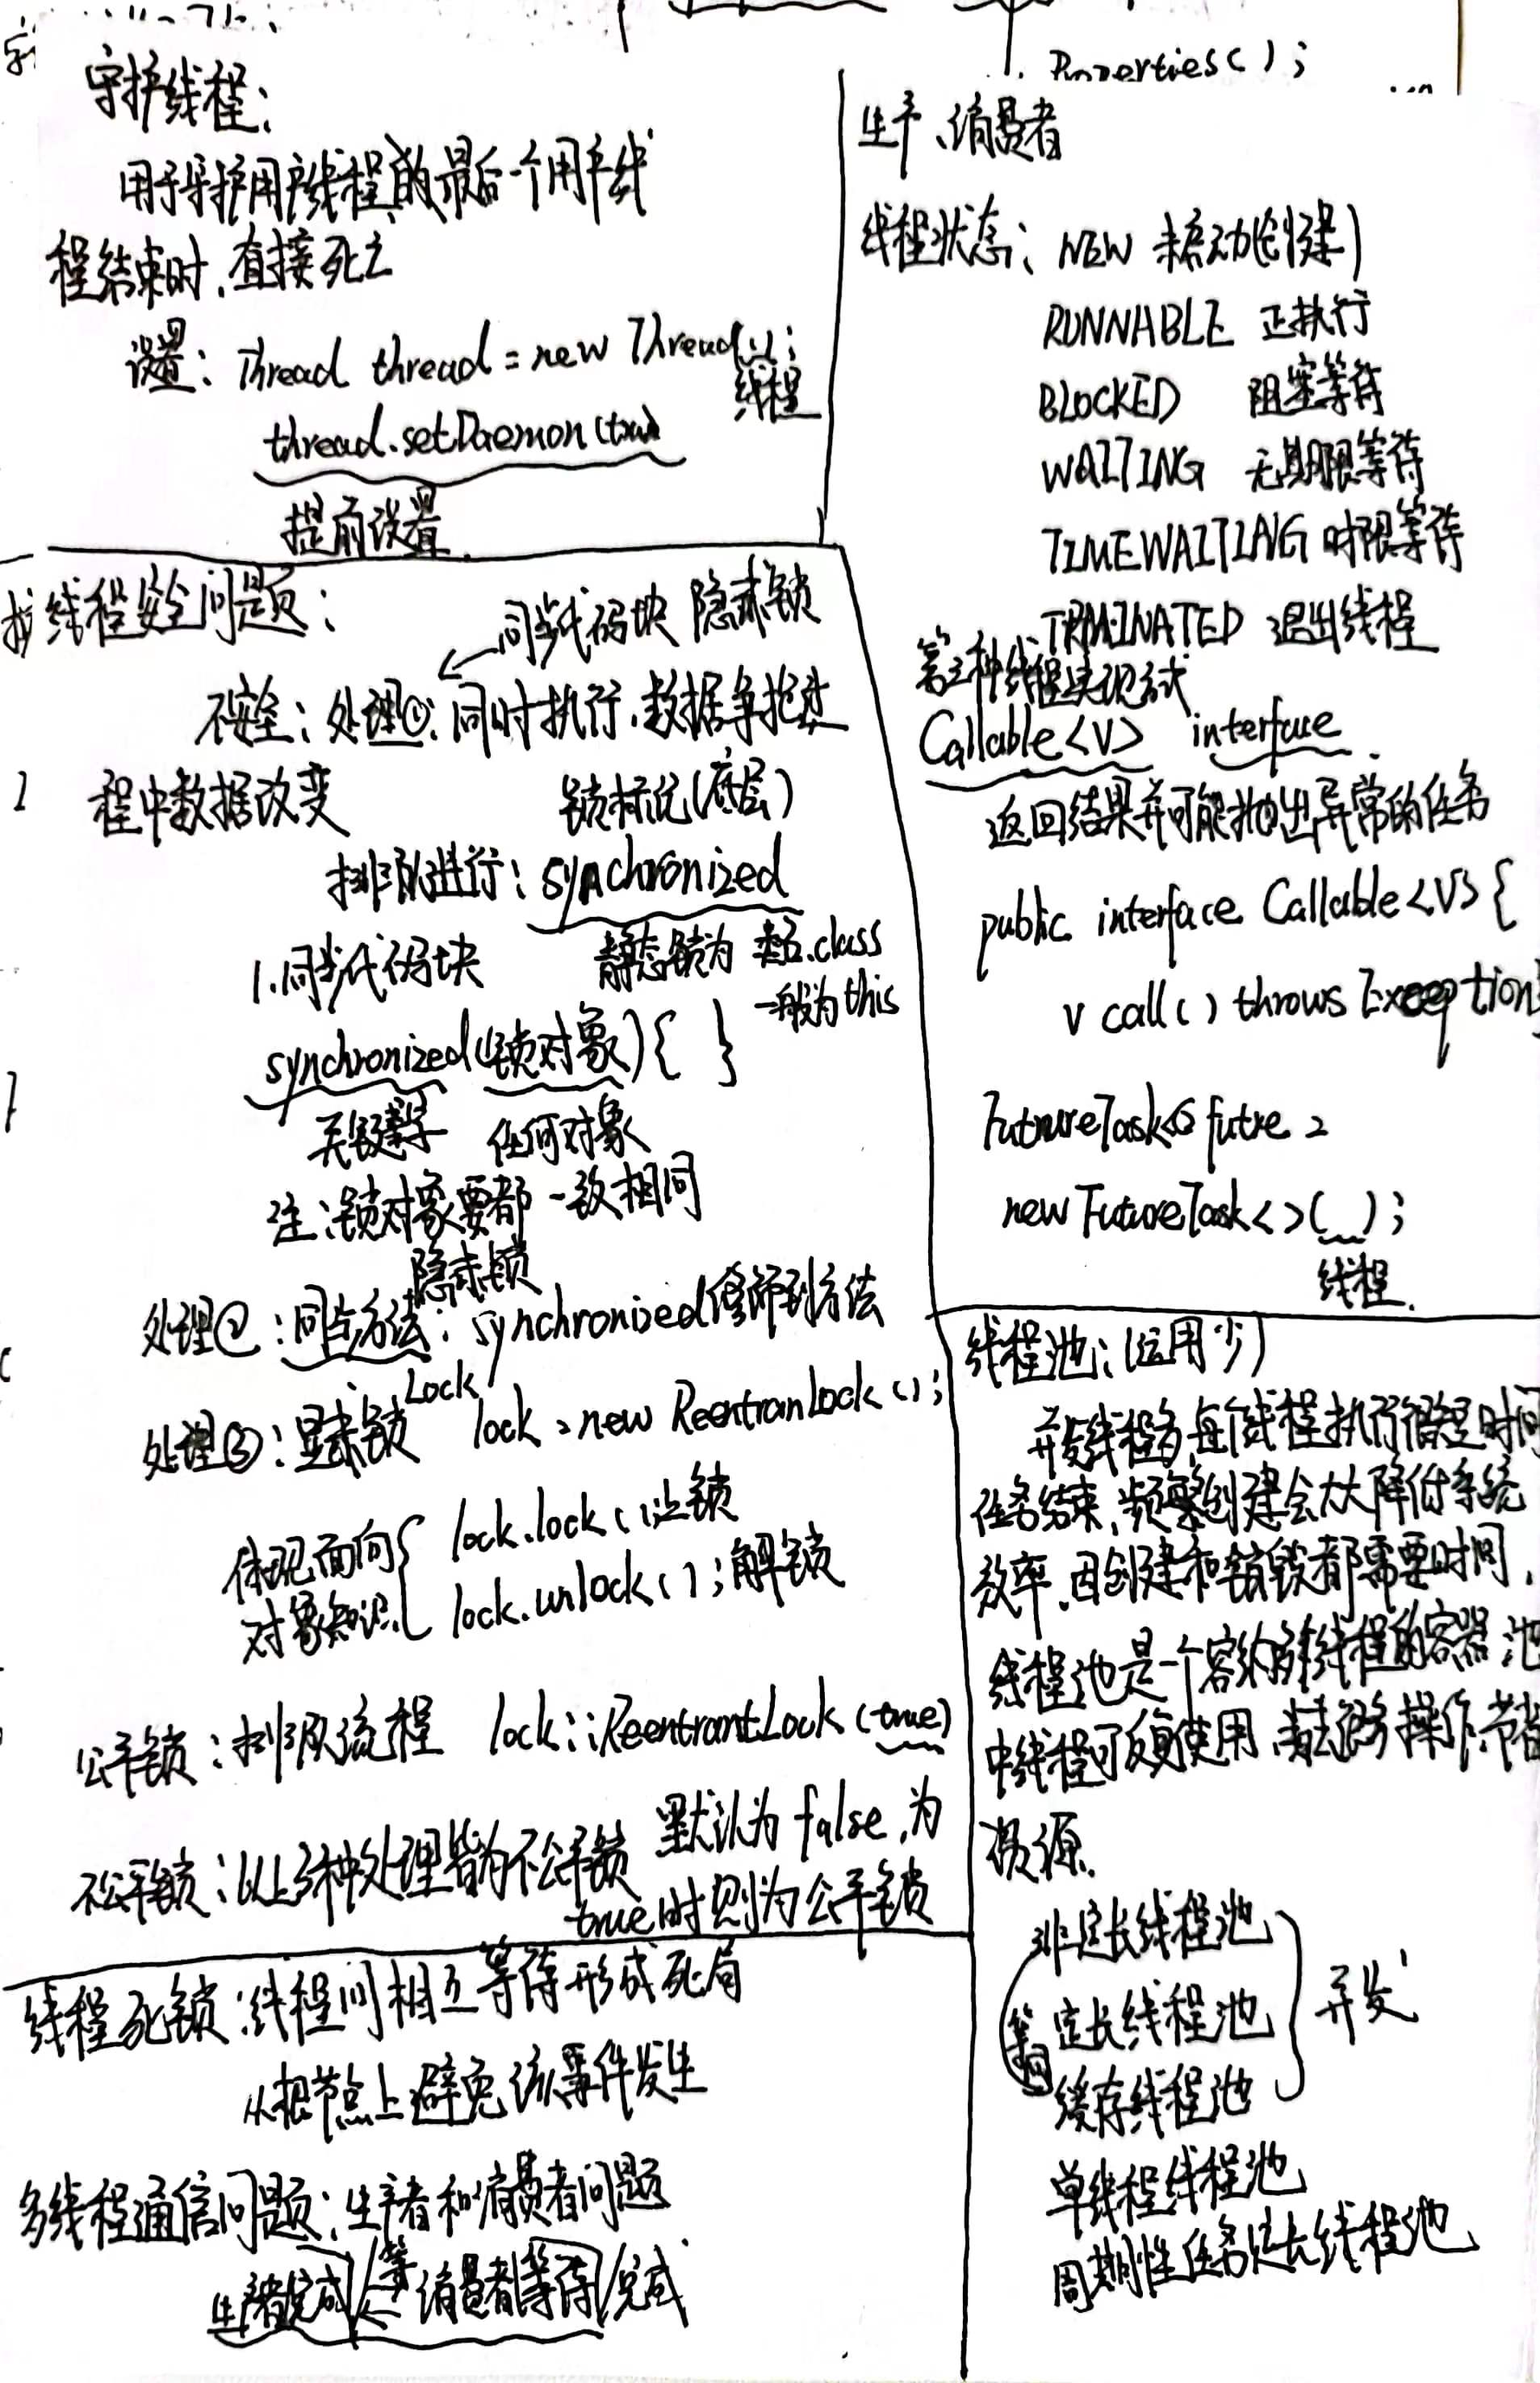 Properties();
守护线程:
用于守护用户线程,的最后一个用户线
程结束时,直接死亡
设置: Thread thread = new Thread();
线程
thread.setDaemon(true)
提前设置.
线程安全问题:
同步代码块 隐式锁
不安全: 处理①: 同时执行,数据争抢使
程中数据改变
锁标记(底层)
排队进行: synchronized
1.同步代码块
静态锁为 类名.class
一般为this
synchronized(锁对象){ }
关键字 任何对象
注:锁对象要都一致相同
隐式锁
处理②:同步方法: synchronized修饰到方法
处理③:显式锁 Lock lock = new ReentranLock();
体现面向
对象知识
lock.lock();上锁
lock.unlock();解锁
公平锁:排队流程 lock::ReentrantLock(true)
不公平锁:以上3种处理皆为不公平锁 默认为false,为
true时则为公平锁
线程死锁:线程间相互等待形成死局
从根节点上避免该事件发生
多线程通信问题:生产者和消费者问题
生产者完成/等 消费者等待/完成
生产、消费者
线程状态: NEW 未启动(创建)
RUNNABLE 正执行
BLOCKED 阻塞等待
WAITING 无期限等待
TIMEWAITING 时限等待
TRMINATED 退出线程
第三种线程实现方式
Callable<V> interface.
返回结果并可能抛出异常的任务
public interface Callable<V> {
V call() throws Exception}
FutnureTask<> futre =
new FutureTask<>( );
线程.
线程池:(运用少)
并发线程多,每个线程执行很短时间
任务结束,频繁创建会大大降低系统
效率.因创建和销毁都需要时间,
线程池是一个容纳多线程的容器 池
中线程可反复使用,省去很多操作,节省
资源.
非定长线程池
定长线程池
缓存线程池
并发
单线程线程池
周期性任务定长线程池